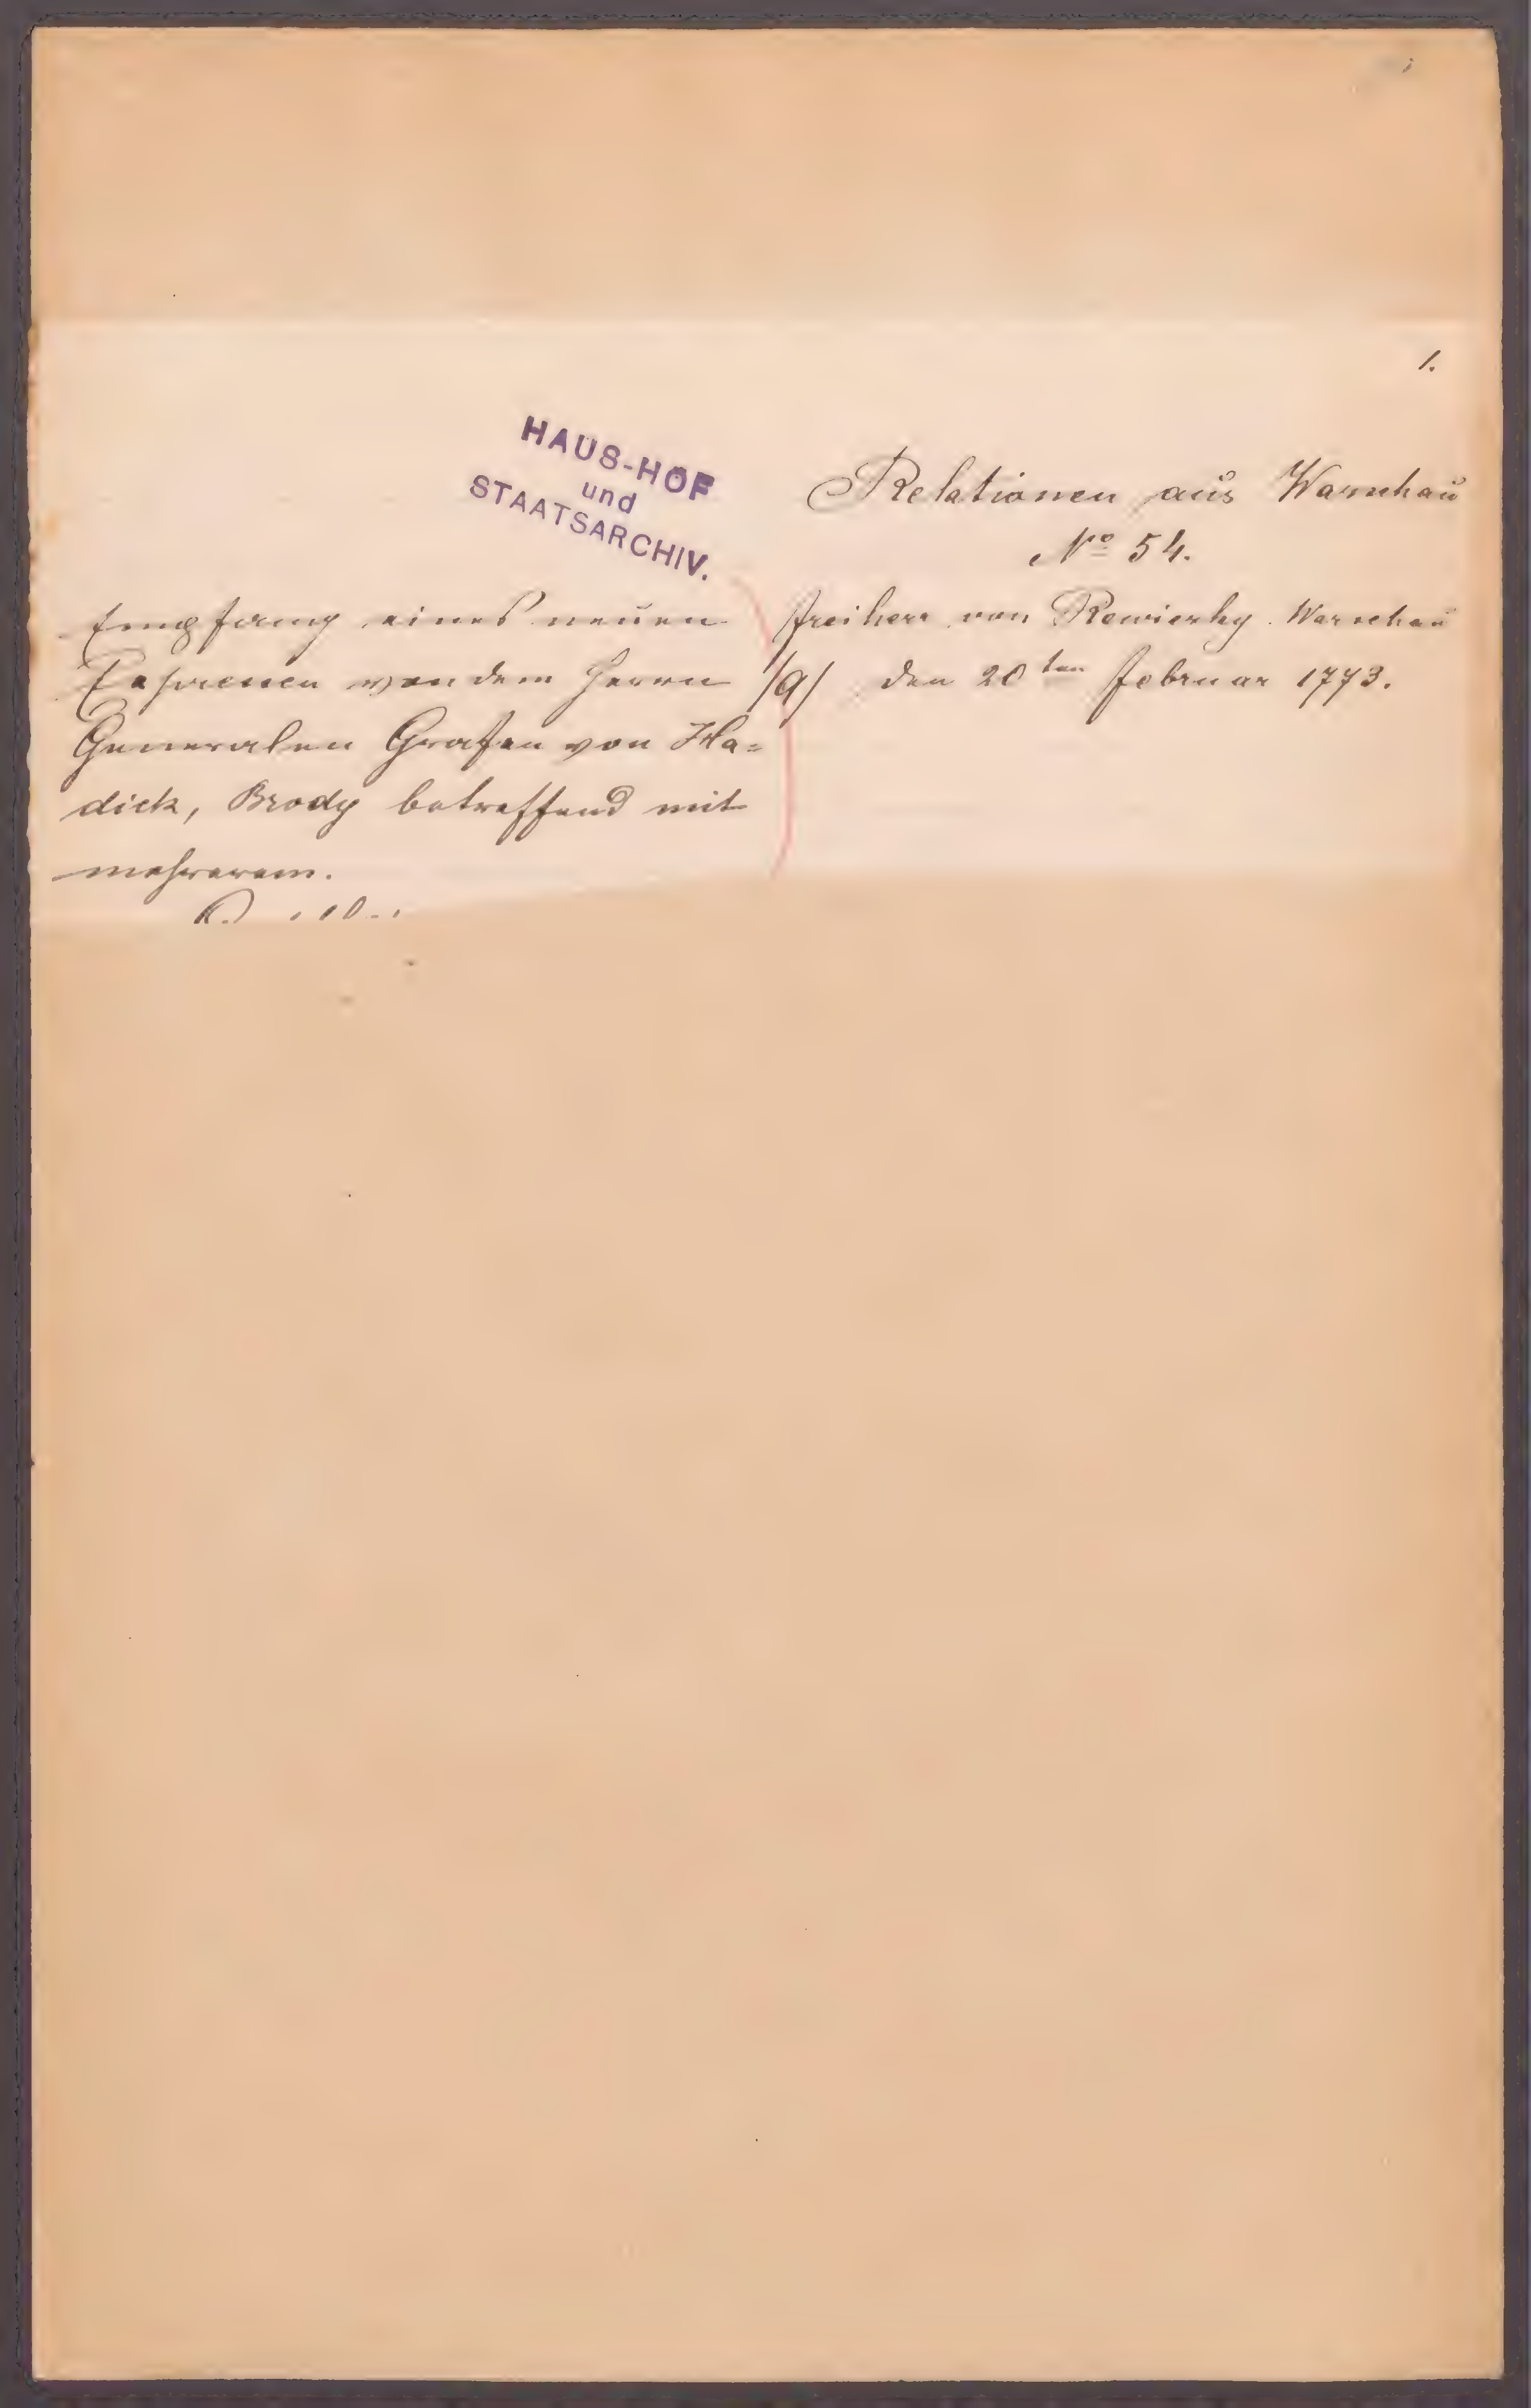 1.
HAUS-HOF
und
STAATSARCHIV.
Relationen aus Warschau
No 54.
Freiherr von Rewiczky. Warschau
/a/ den 20ten Februar 1773.
Empfang eines neuen
Expressen von dem Herrn
Generalen Grafen von Ha=
dick, Brody betreffend mit
mehrerem.